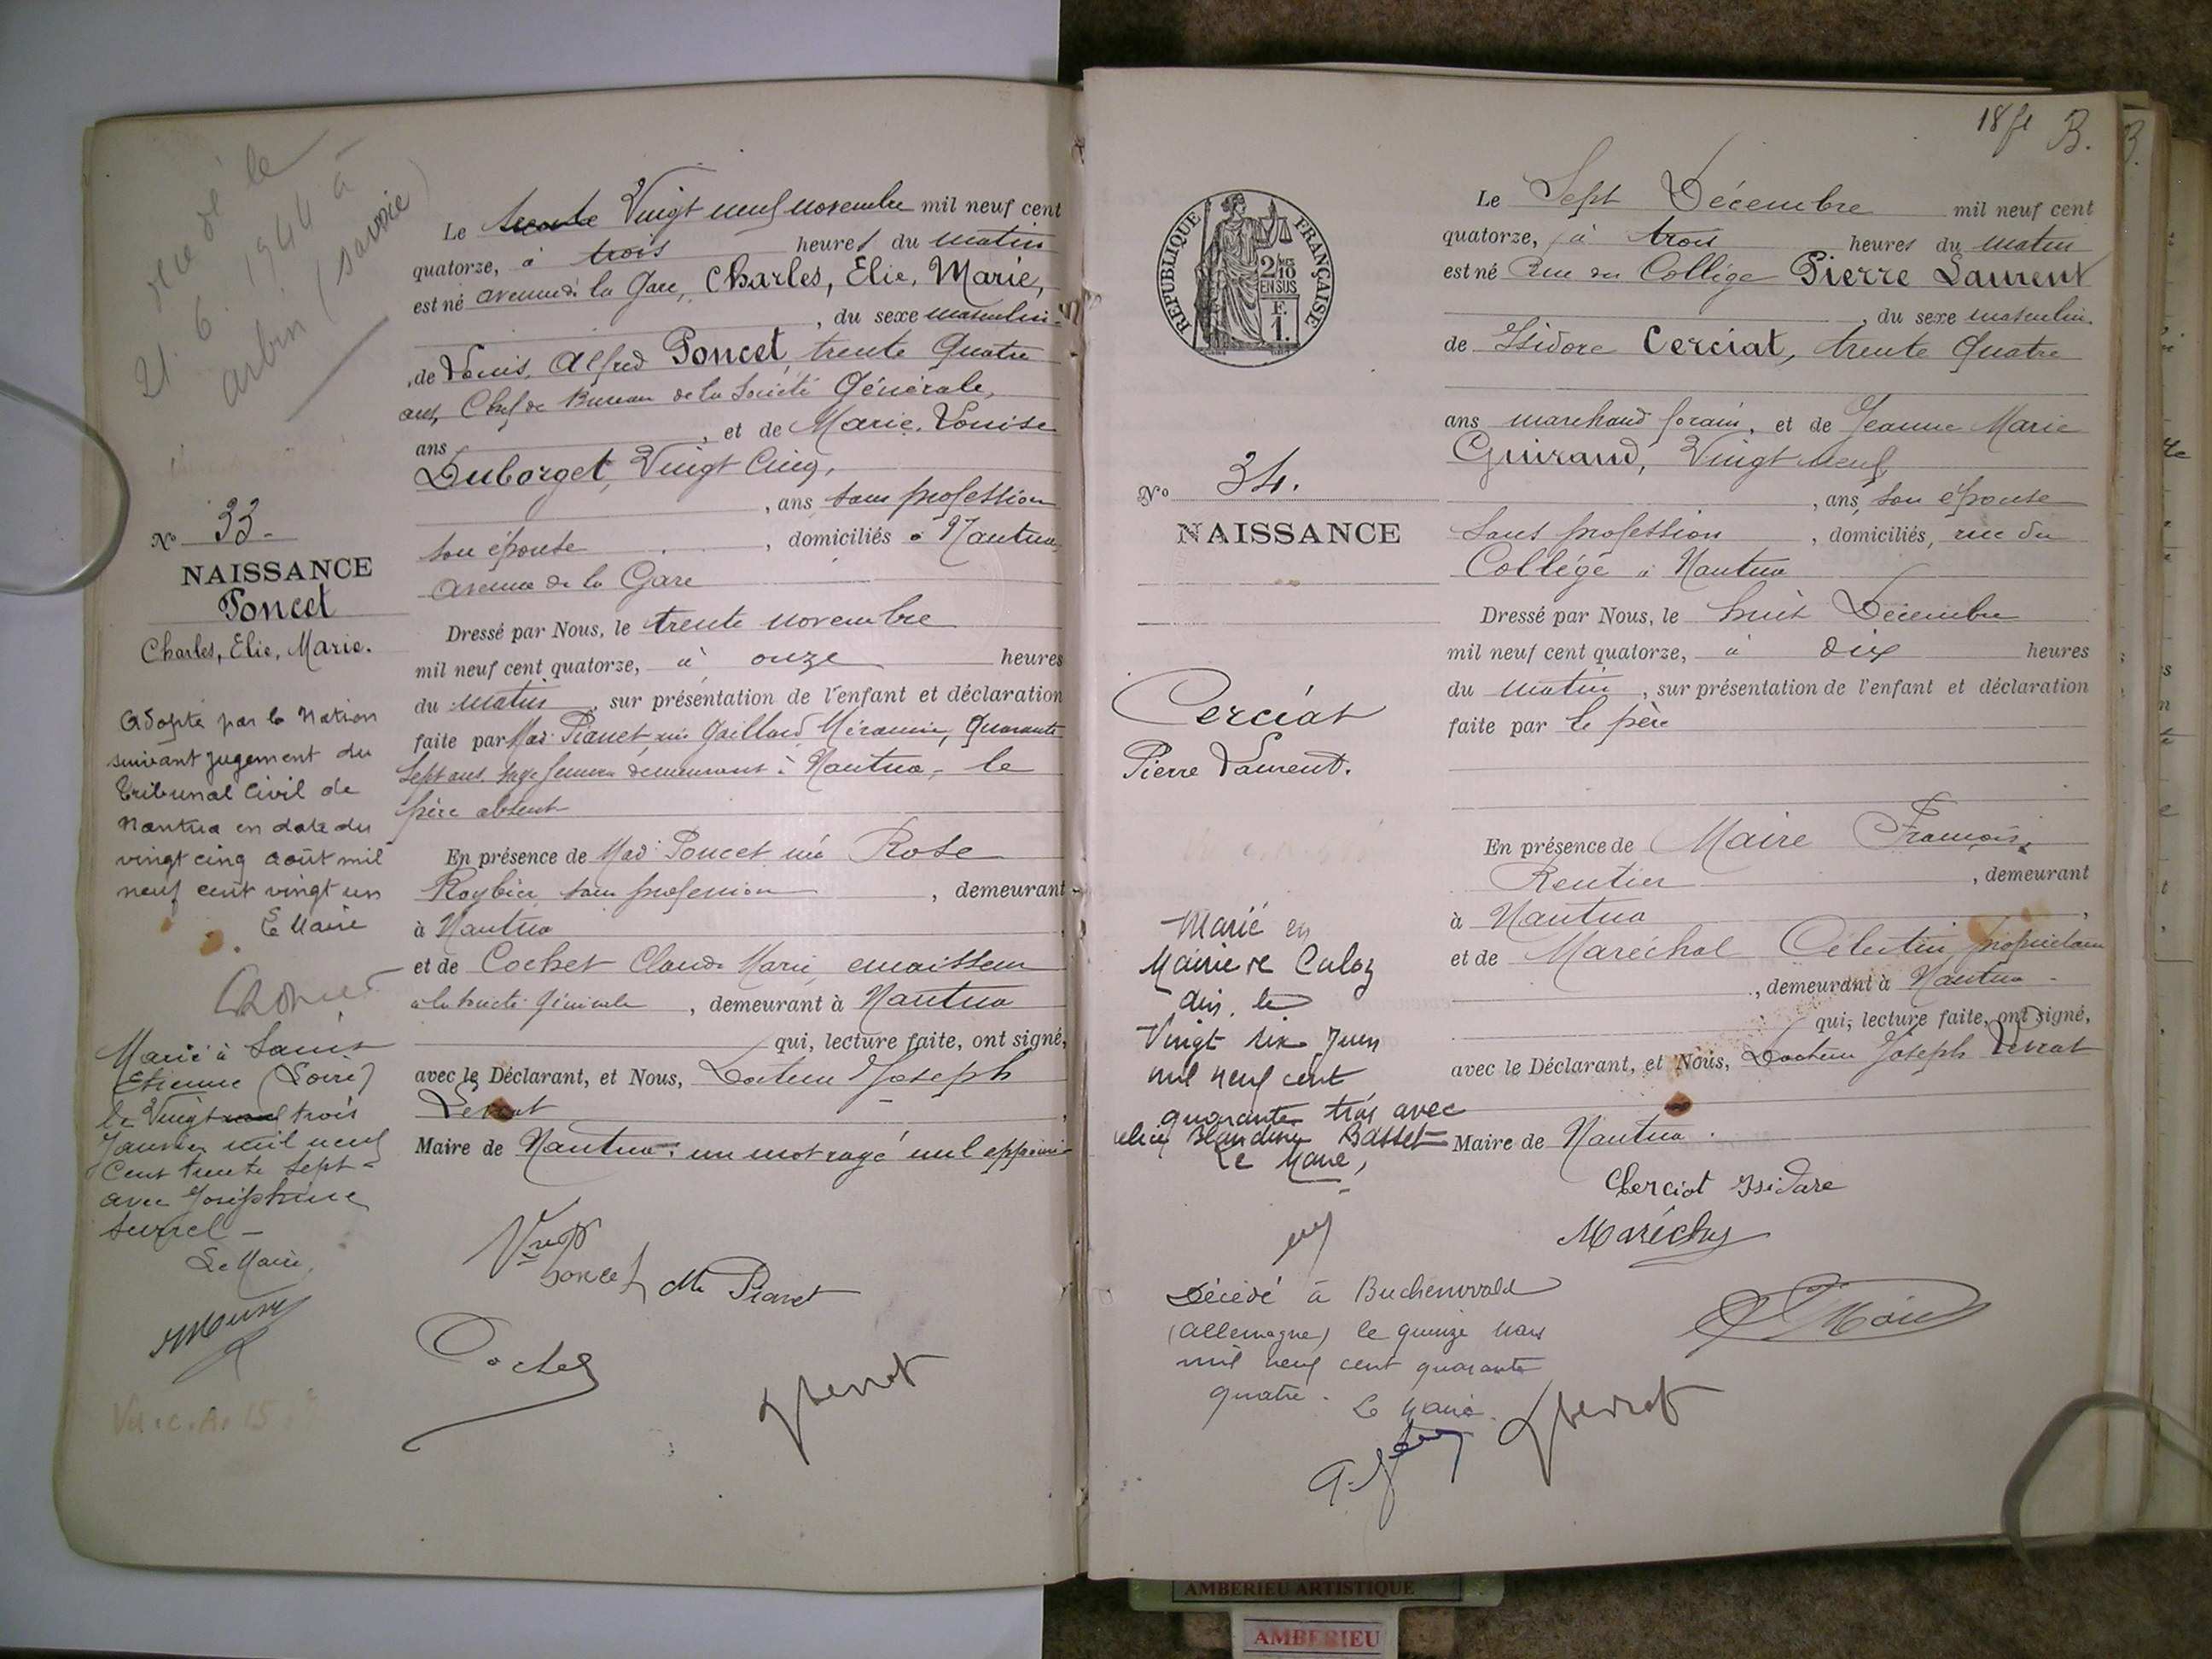 décédé le
21. 6. 1944 à
arbin (savoie)
N° 33.
NAISSANCE
Poncet
Charles, Elie, Marie.
Adopté par la Nation
suivant jugement du
Tribunal Civil de
Nantua en date du
vingt cinq août mil
neuf cent vingt un
Le Maire
Marié à Saint
Etienne (Loire)
le Vingt trois
Janvier mil neuf
Cent trente Sept
avec Joséphine
Le Maire,
Le trente Vingt neuf novembre mil neuf cent
quatorze, à trois heures du matin
est né avenue de la Gare, Charles, Elie, Marie,
, du sexe masculin
de Louis, Alfred Poncet, trente Quatre
ans, Chef de Bureau de la Société Générale,
ans , et de Marie, Louise
Duborget, Vingt Cinq,
, ans sans profession
son épouse , domiciliés à Nantua,
avenue de la Gare
Dressé par Nous, le trente novembre
mil neuf cent quatorze, à onze heures
du matin, sur présentation de l'enfant et déclaration
faite par Mad. Pianet née Gaillard, Quarante
Sept ans, sage femme demeurant à Nantua, le
père absent
En présence de Mad. Poncet née Rose
Roybier sans profession , demeurant
à Nantua
et de Cochet Claude Marie, encaisseur
à la Société Générale , demeurant à Nantua
qui, lecture faite, ont signé,
avec le Déclarant, et Nous, Docteur Joseph
Levrat
Maire de Nantua. un mot rayé nul
Vve
Poncet Me Pianet
Cochet
J Levrat
18 fl B.
REPUBLIQUE FRANÇAISE
2/10 MES
EN SUS
F.
1.
N° 34.
NAISSANCE
Cerciat
Pierre Laurent.
Marié en
Mairie de Culoz
Ain, le
Vingt six Juin
mil neuf cent
quarante trois avec
Blandine Basset
Le Maire,
Décédé à Buchenwald
(Allemagne) le quinze Mars
mil neuf cent quarante
quatre. Le Maire.
Le Sept Décembre mil neuf cent
quatorze, à trois heures du matin
est né Rue du Collège Pierre Laurent
, du sexe masculin
de Isidore Cerciat, trente Quatre
ans marchand forain, et de Jeanne Marie
Guiraud, Vingt neuf
, ans, son épouse
Sans profession , domiciliés, rue du
Collège à Nantua
Dressé par Nous, le huit Décembre
mil neuf cent quatorze, à dix heures
du matin, sur présentation de l'enfant et déclaration
faite par le père
En présence de Maire François,
Rentier , demeurant
à Nantua ,
et de Maréchal Célestin, propriétaire
, demeurant à Nantua
qui, lecture faite, ont signé,
avec le Déclarant, et Nous, Docteur Joseph Levrat
Maire de Nantua.
Cherciat Isidore
Maréchal
J Levrat
AMBERIEU ARTISTIQUE
AMBERIEU